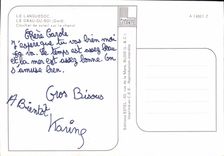 LE LANGUEDOC
LE GRAU-DU-ROI (Gard)
Coucher de soleil sur le chenal
Chère Carole
J'espère que tu vas bien moi
ça va. Le temps est assez beau
et la mer est assez bonne. On
s'amuse bien.
Gros Bisous
A Bientôt
Karine